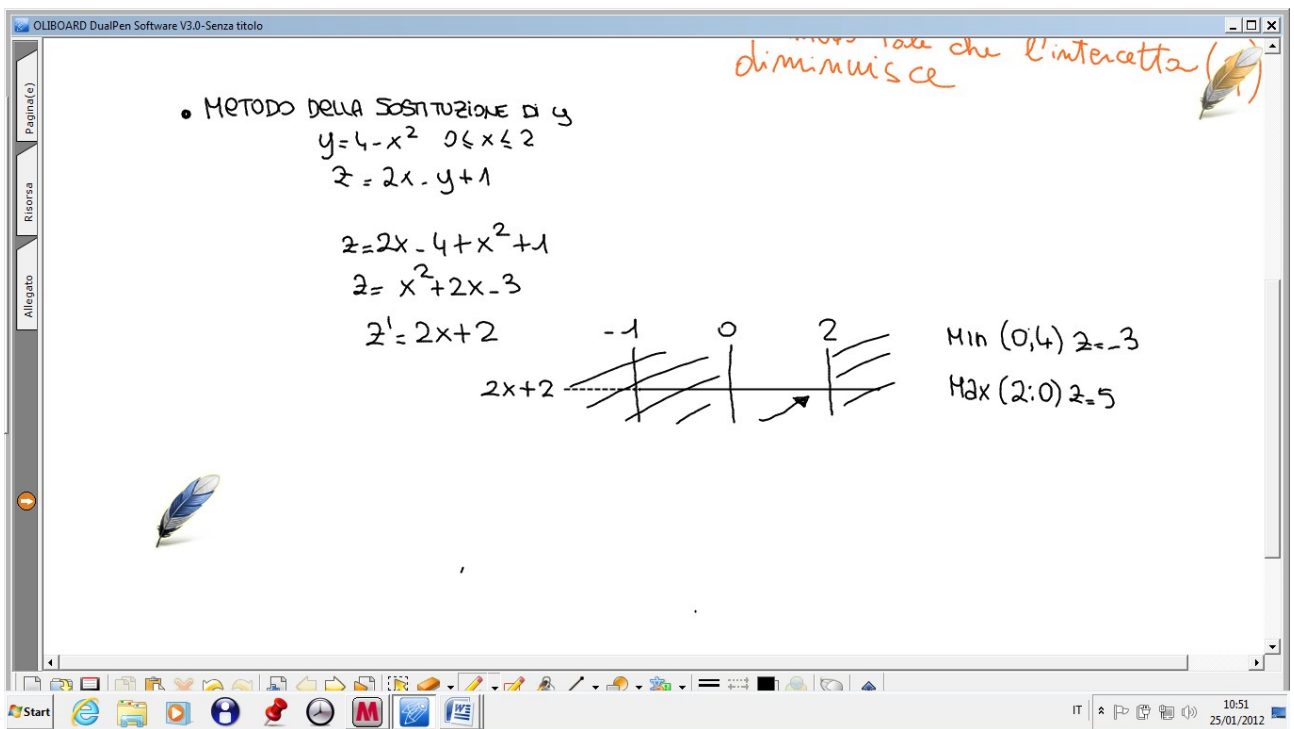 OLIBOARD DualPen Software V3.0-Senza titolo
Pagina(e)
Risorsa
Allegato
che l'intercetta (
diminuisce
• METODO DELLA SOSTITUZIONE DI y
y=4-x² 0≤x≤2
z=2x-y+1
z=2x-4+x²+1
z=x²+2x-3
z'=2x+2
-1 0 2
2x+2
Min (0;4) z=-3
Max (2;0) z=5
Start
IT
10:51
25/01/2012